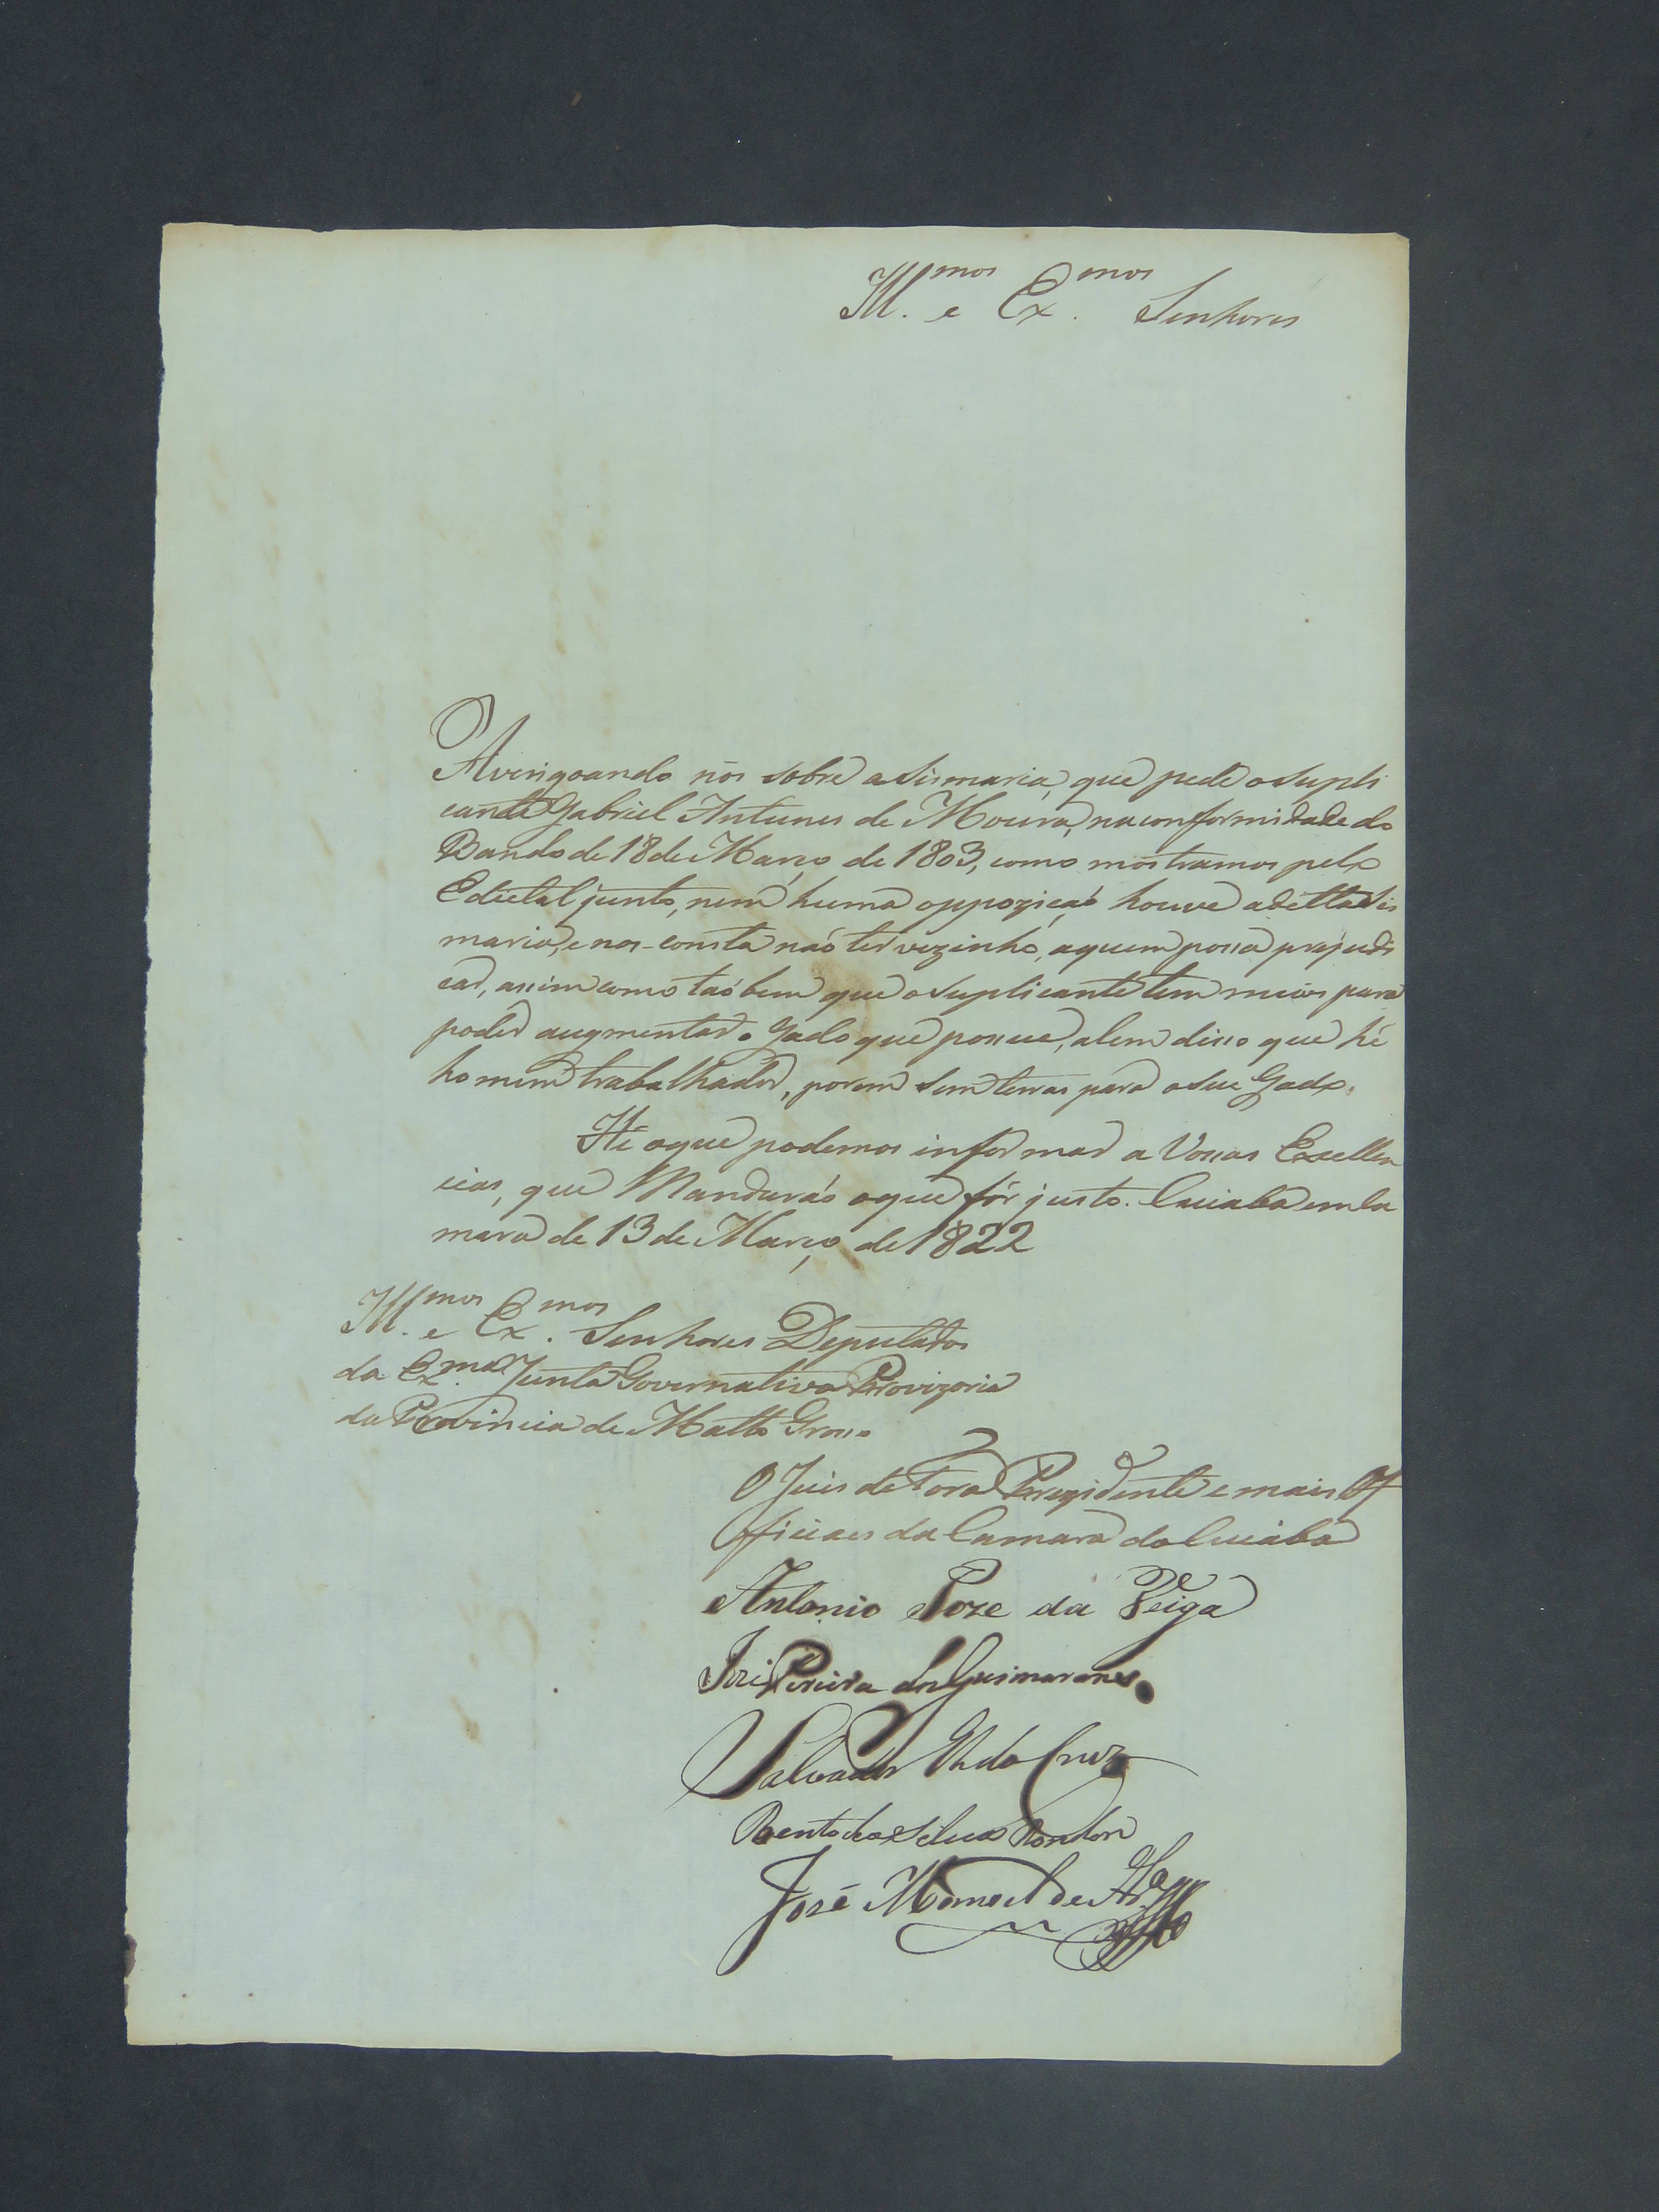 Ill.mos e Ex.mos Senhores
Averigoando nós sobre a Sismaria, que pede o supli
cante Gabriel Antunes de Moura, na conformidade do
Bando de 18 de Março de 1803, como mostramos pelo
Edictal junto, nem huma oppozição houve a ditta Sis
maria, e nos consta naó ter vezinho, a quem possa prejudi
car, assim como taóbem que o suplicante tem meios para
poder augmentar o Gado que possue, alem disso que hé
homem trabalhador, porem sem terras para o seu Gado.
Hé o que podemos informar a Vossas Excellen
cias, que Mandaráó o que fór justo. Cuiabá em Ca
mara de 13 de Março de 1822
Ill.mos e Ex.mos Senhores Deputados
da Ex.ma Junta Governativa Provizoria
da Provincia de Matto Grosso
O Juis de Fora Prezidente e mais Of
ficiaes da Camara do Cuiabá
Antonio Joze da Veiga
Jozé Pereira dos Guimaranes
Salvador da Cruz
Bento da Silva Rondon
José Manoel de